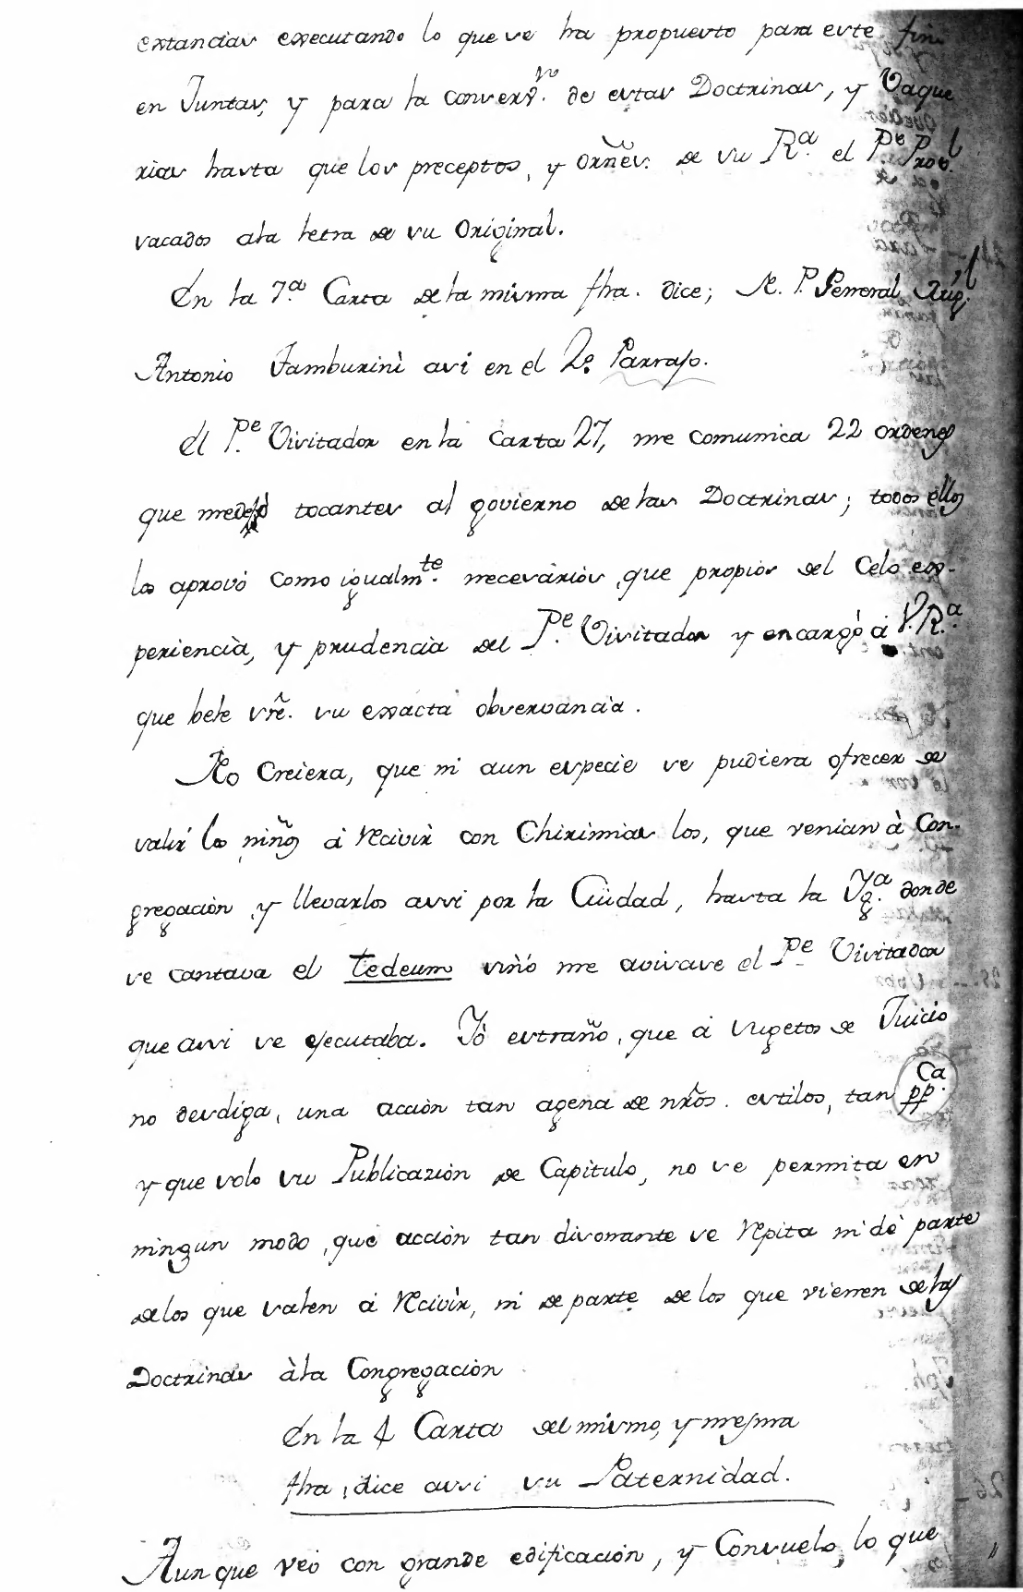 estancias executando lo que se ha propuesto para este fin
en Juntas, y para la conversn. de estas Doctrinas, y Vaque
rias hasta que los preceptos, y ornẽs. de su Ra. el Pe. Prov.l
sacados ala letra de su Original.
En la 7.a Carta de la misma fha. dice; N. P. General
Antonio Tamburinì asi en el 2o. Parrafo.
El P.e Visitador en la Carta 27, me comunica 22 ordenes
que me dejò tocantes al govierno de las Doctrinas; todos ellos
los aprovò como igualm.te necesarios, que propios del Celo, ex-
periencia, y prudencia del P.e Visitador y encargo à V. R.a
que cele sre. su exacta observancia.
No Creiera, que ni aun especie se pudiera ofrecer de
salir los niños à recivir con Chirimias los, que venian à Con-
gregacion, y llevarlos assi por la Ciüdad, hasta la Yg.a donde
se cantava el tedeum sinò me avisase el P.e Visitador
que assi se ejecutaba. Yò estraño, que à sugetos de Juicio
no desdiga, una acciòn tan agena de nrõs. estilos, tan pp.Ca
y que solo su Publicazion de Capitulo, no se permita en
ningun modo, que acciòn tan disonante se repita ni dè parte
de los que salen à recivir, ni de parte de los que vienen de las
Doctrinas àla Congregaciòn
En la 4 Carta del mismo, y mesma
fha, dice assi su Paternidad.
Aunque veo con grande edificaciòn, y Consuelo, lo que